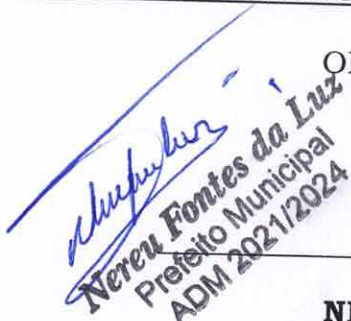 Nereu Fontes da Luz
Prefeito Municipal
ADM 2021/2024